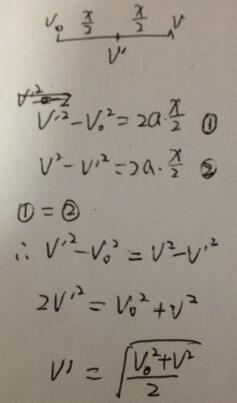 V₀ x/2 x/2 V
V'
V'²-V₀²=2a·x/2 ①
V²-V'²=2a·x/2 ②
①=②
∴ V'²-V₀²=V²-V'²
2V'²=V₀²+V²
V'=√((V₀²+V²)/2)